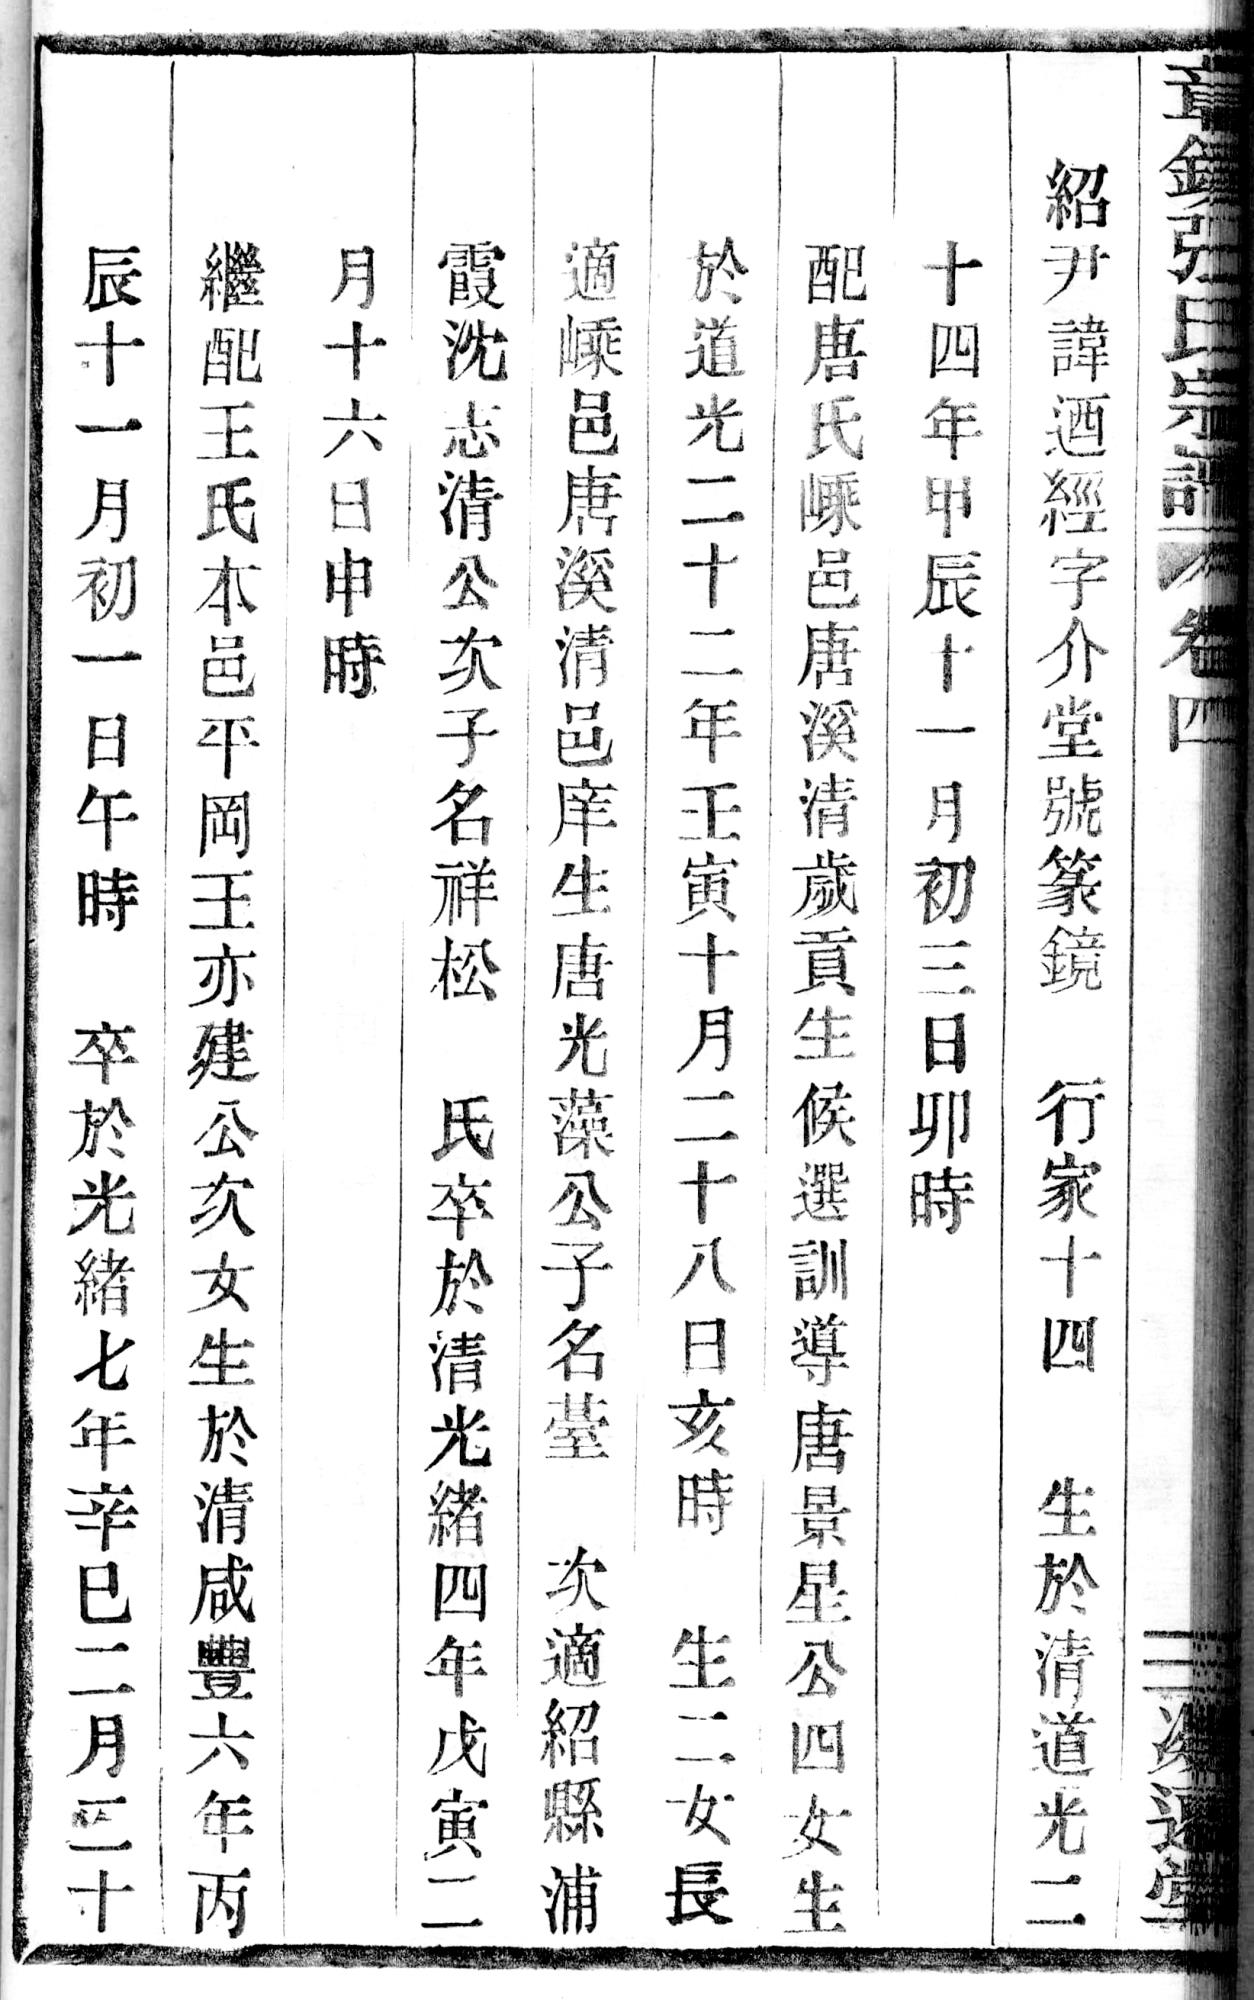 章鎮張氏宗譜 卷四
紹尹諱迺經字介堂號篆鏡 行家十四 生於清道光二
十四年甲辰十一月初三日卯時
配唐氏嵊邑唐溪清歲貢生候選訓導唐景星公四女生
於道光二十二年壬寅十月二十八日亥時 生二女長
適嵊邑唐溪清邑庠生唐光藻公子名薹 次適紹縣浦
霞沈志清公次子名祥松 氏卒於清光緒四年戊寅二
月十六日申時
繼配王氏本邑平岡王亦建公次女生於清咸豐六年丙
辰十一月初一日午時 卒於光緒七年辛巳二月二十